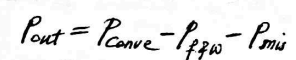 Pout = Pconve - Pf&w - Pmis